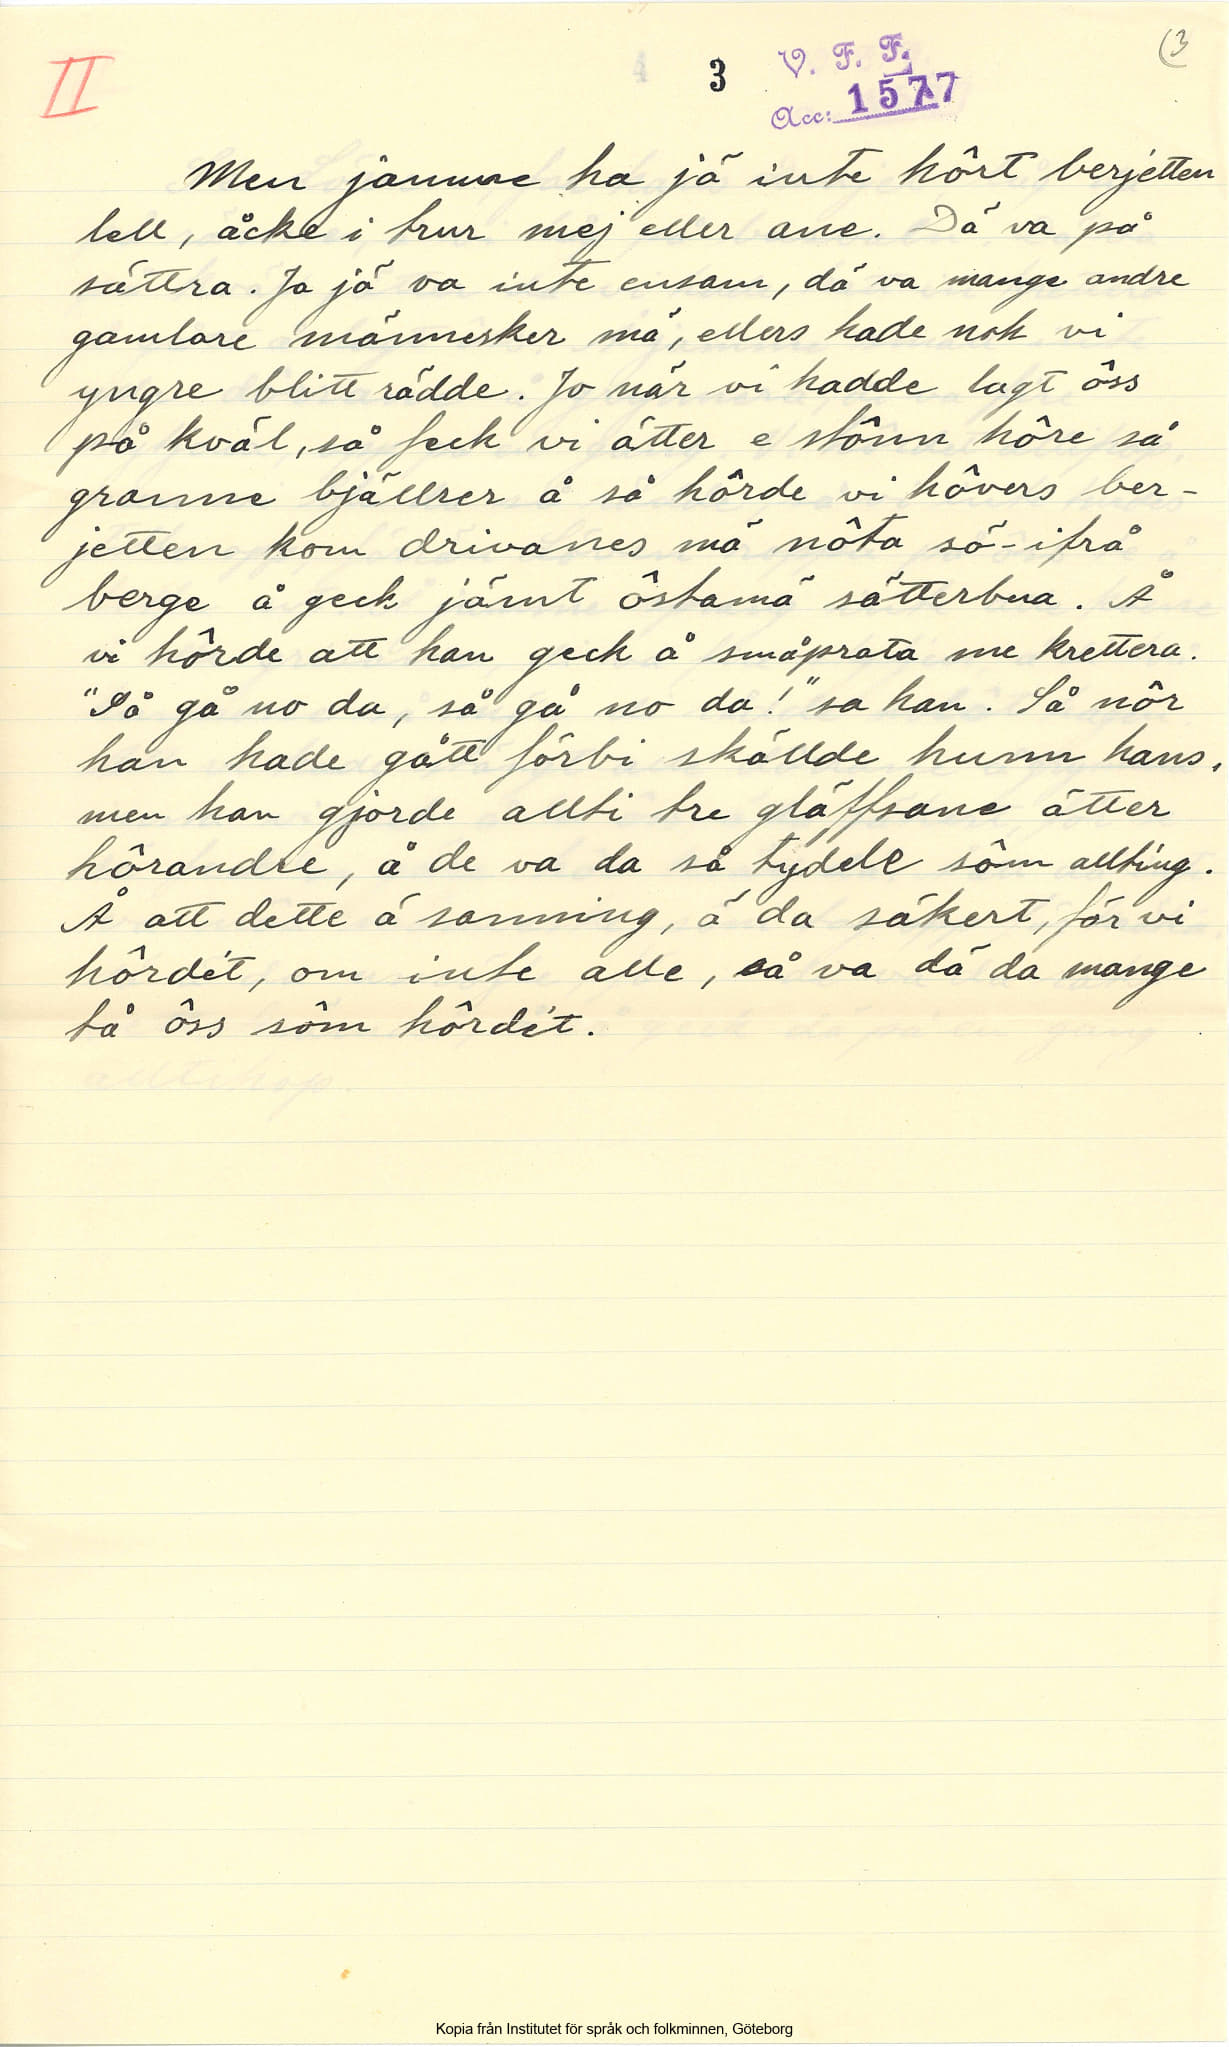 II
3
V. F. F.
Acc: 1577
(3
Men jamne ha jä inte hôrt berjetten
lell, åcke i trur mej eller ane. Dä va på
sättra. Ja jä va inte ensam, dä va mange andre
gamlare männesker mä, ellers hade nok vi
yngre blitt rädde. Jo när vi hadde lagt ôss
på kväl, så feck vi ätter e stônn hôre så
granne bjällrer å så hôrde vi hôvers ber-
jetten kom drivanes mä nôta sö-ifrå
berge å geck jämt ôstamä sätterbua. Å
vi hôrde att han geck å småprata me krettera.
"Så gå no da, så gå no da!" sa han. Så nôr
han hade gått förbi skällde hunn hans,
men han gjorde allti tre gläffsane ätter
hôrandre, å de va da så tydele sôm allting.
Å att dette ä sanning, ä da säkert, för vi
hôrdét, om inte alle, så va dä da mange
tå ôss sôm hôrdét.
Kopia från Institutet för språk och folkminnen, Göteborg